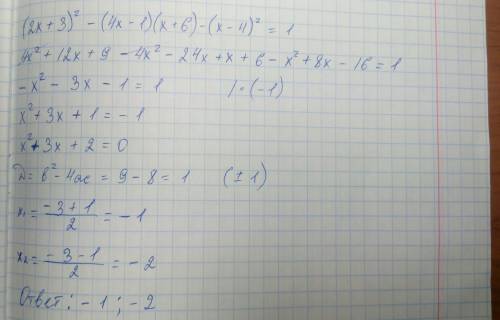 (2x+3)² - (4x-1)(x+6) - (x-4)² = 1
4x² + 12x + 9 - 4x² - 24x + x + 6 - x² + 8x - 16 = 1
-x² - 3x - 1 = 1 /·(-1)
x² + 3x + 1 = -1
x² + 3x + 2 = 0
D = b² - 4ac = 9 - 8 = 1 (± 1)
x₁ = \frac{-3+1}{2} = -1
x₂ = \frac{-3-1}{2} = -2
Ответ: -1; -2